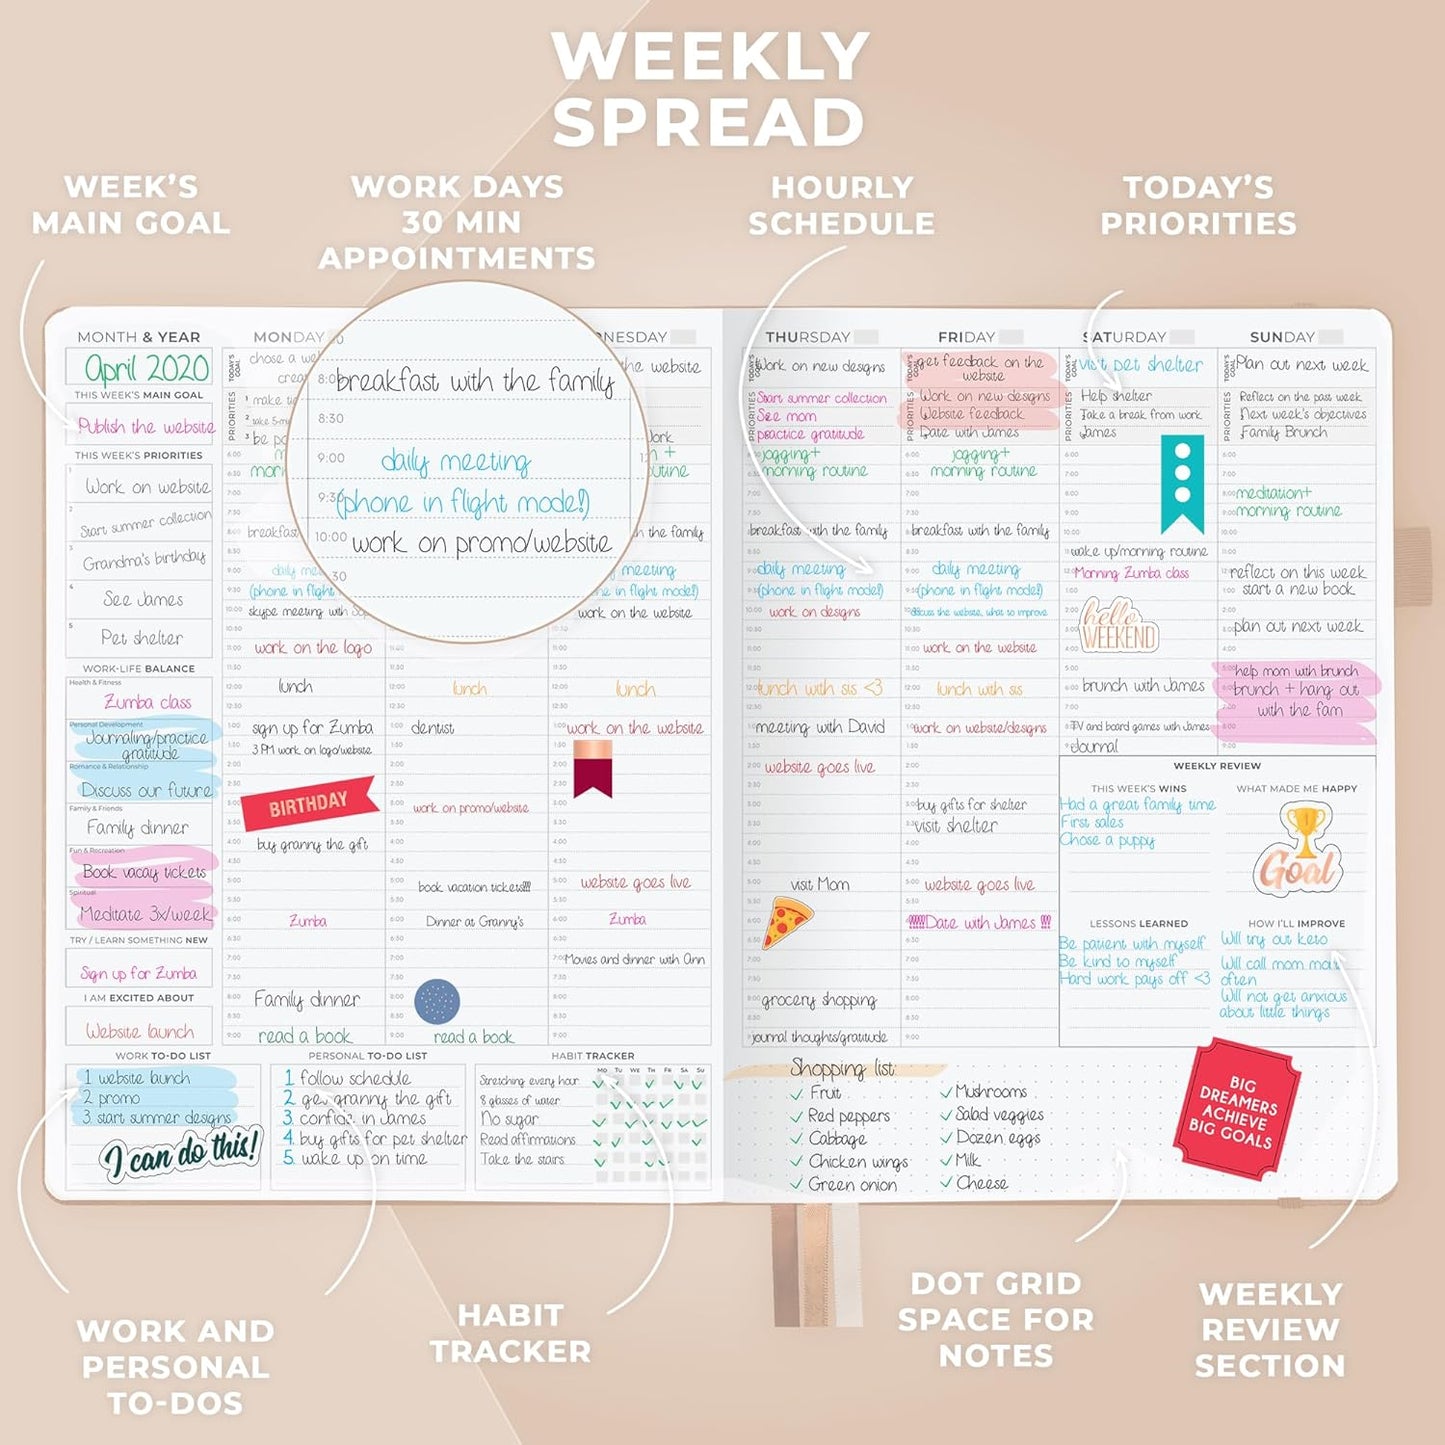 WEEKLY
SPREAD
WEEK'S
MAIN GOAL
WORK DAYS
30 MIN
APPOINTMENTS
HOURLY
SCHEDULE
TODAY'S
PRIORITIES
MONTH & YEAR
April 2020
THIS WEEK'S MAIN GOAL
Publish the website
THIS WEEK'S PRIORITIES
1
Work on website
2
Start summer collection
3
Grandma's birthday
4
See James
5
Pet shelter
WORK-LIFE BALANCE
Health & Fitness
Zumba class
Personal Development
Journaling/practice
gratitude
Romance & Relationship
Discuss our future
Family & Friends
Family dinner
Fun & Recreation
Book vacay tickets
Spiritual
Meditate 3x/week
TRY / LEARN SOMETHING NEW
Sign up for Zumba
I AM EXCITED ABOUT
Website launch
MONDAY
PRIORITIES
breakfast
daily
(phone in flight
skype meeting with
work on the logo
lunch
sign up for Zumba
3 PM work on logo/website
BIRTHDAY
buy granny the gift
Zumba
Family dinner
read a book
8:30
breakfast with the family
9:00
daily meeting
(phone in flight mode!)
10:00 work on promo/website
lunch
dentist
work on promo/website
book vacation tickets!!!!
Dinner at Granny's
read a book
NESDAY
the website
the family
meeting
in flight mode!)
work on the website
lunch
work on the website
website goes live
Zumba
Movies and dinner with Ann
THURSDAY
TODAY'S GOAL
Work on new designs
PRIORITIES
Start summer collection
See mom
practice gratitude
jogging+
morning routine
breakfast with the family
daily meeting
(phone in flight mode!)
work on designs
lunch with sis <3
meeting with David
website goes live
visit Mom
grocery shopping
journal thoughts/gratitude
FRIDAY
TODAY'S GOAL
get feedback on the
website
PRIORITIES
Work on new designs
Website feedback
Date with James
jogging+
morning routine
breakfast with the family
daily meeting
(phone in flight mode!)
discuss the website, what to improve
work on the website
lunch with sis
work on website/designs
buy gifts for shelter
visit shelter
website goes live
!!!!!Date with James !!!!
SATURDAY
TODAY'S GOAL
visit pet shelter
PRIORITIES
Help shelter
Take a break from work
James
wake up/morning routine
Morning Zumba class
hello
WEEKEND
brunch with James
TV and board games with James
Journal
SUNDAY
TODAY'S GOAL
Plan out next week
PRIORITIES
Reflect on the past week
Next week's objectives
Family Brunch
meditation+
morning routine
reflect on this week
start a new book
plan out next week
help mom with brunch
brunch + hang out
with the fam
WEEKLY REVIEW
THIS WEEK'S WINS
Had a great family time
First sales
Chose a puppy
WHAT MADE ME HAPPY
1
Goal
LESSONS LEARNED
Be patient with myself
Be kind to myself
Hard work pays off <3
HOW I'LL IMPROVE
Will try out keto
Will call mom more
often
Will not get anxious
about little things
WORK TO-DO LIST
1 website launch
2 promo
3. start summer designs
I can do this!
PERSONAL TO-DO LIST
1 follow schedule
2 get granny the gift
3. confide in James
4. buy gifts for pet shelter
5. wake up on time
HABIT TRACKER
MO TU WE TH FR SA SU
Stretching every hour
8 glasses of water
No sugar
Read affirmations
Take the stairs
Shopping list:
Fruit
Red peppers
Cabbage
Chicken wings
Green onion
Mushrooms
Salad veggies
Dozen eggs
Milk
Cheese
BIG
DREAMERS
ACHIEVE
BIG GOALS
WORK AND
PERSONAL
TO-DOS
HABIT
TRACKER
DOT GRID
SPACE FOR
NOTES
WEEKLY
REVIEW
SECTION